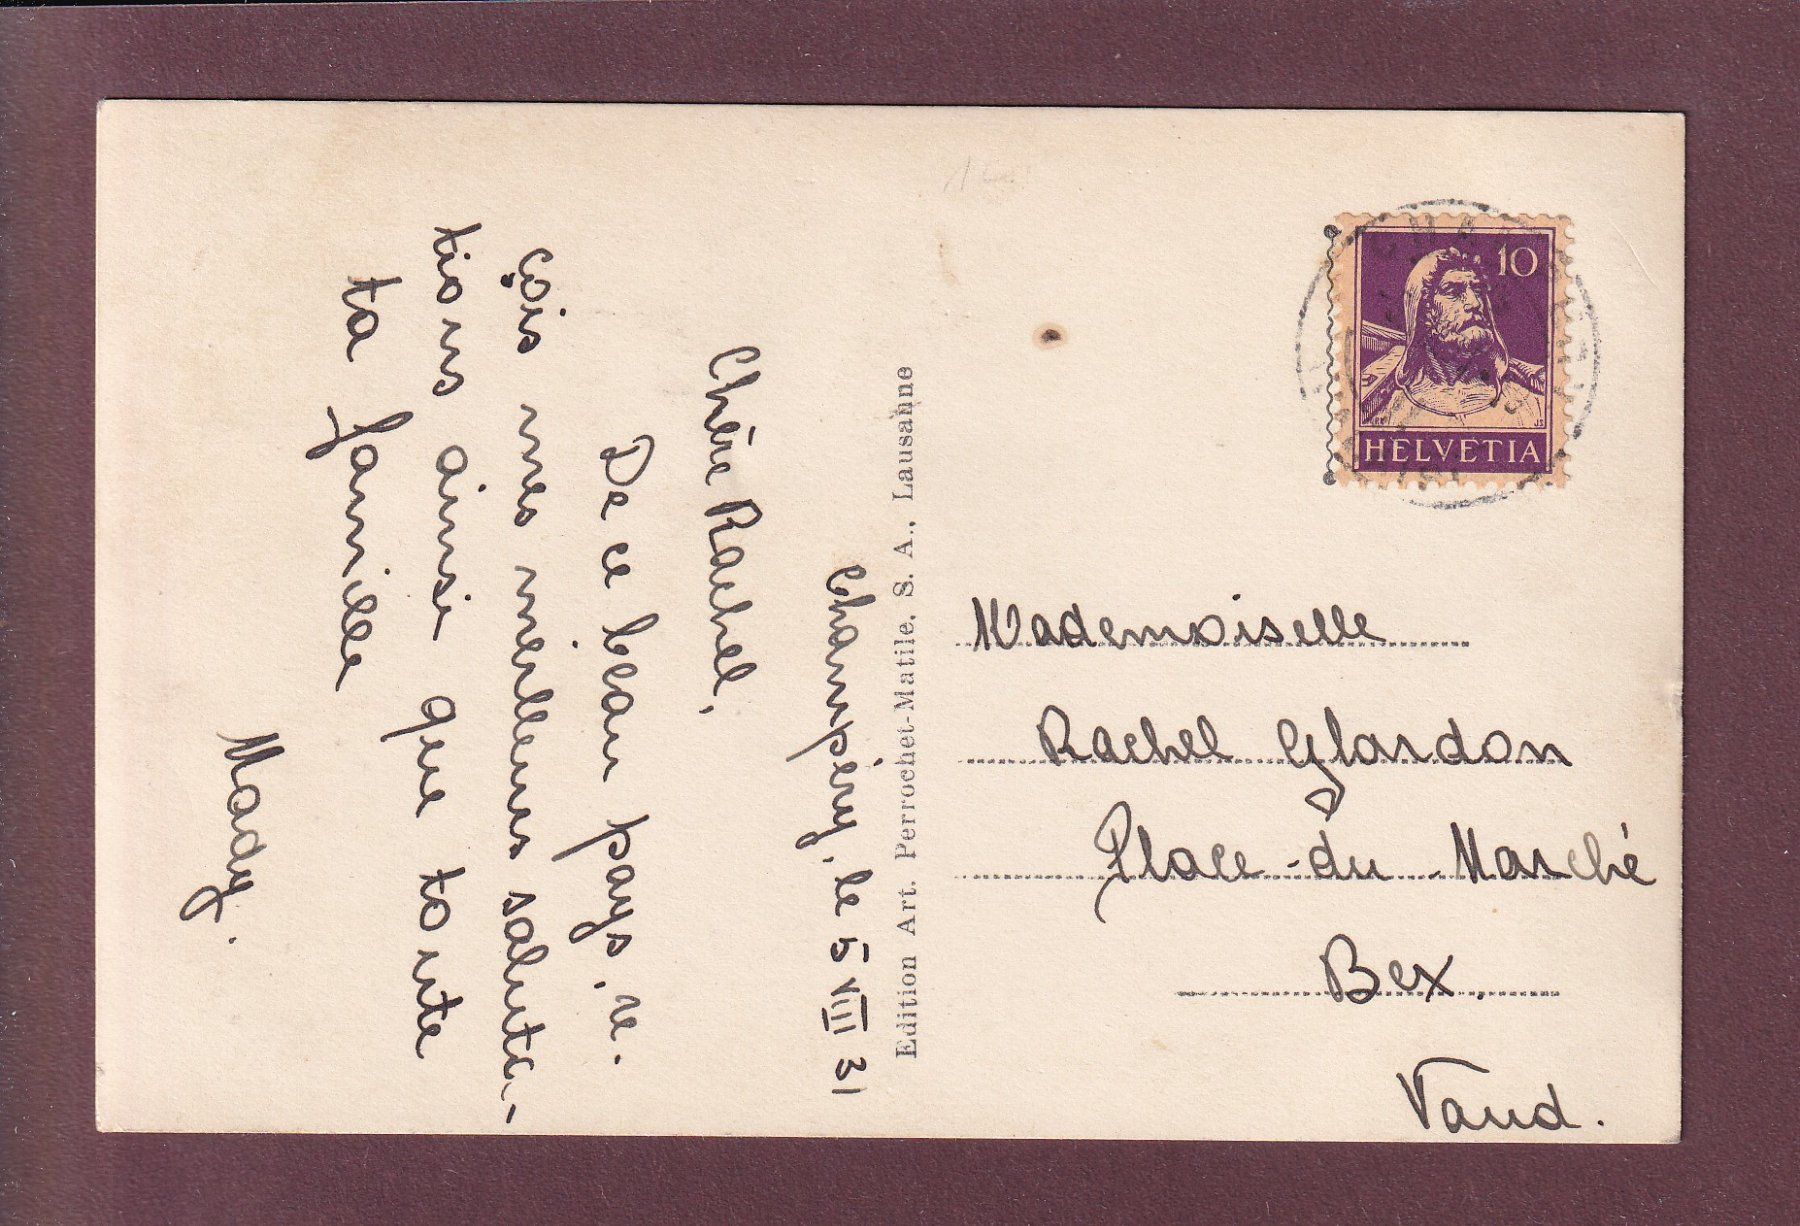 Champéry, le 5 VIII 31
Chère Rachel,
De ce beau pays, re-
çois mes meilleurs saluta-
tions ainsi que toute
ta famille
Mady.
Edition Art. Perrochet-Matile, S. A., Lausanne
10
HELVETIA
Mademoiselle
Rachel Glardon
Place-du-Marché
Bex.
Vaud.